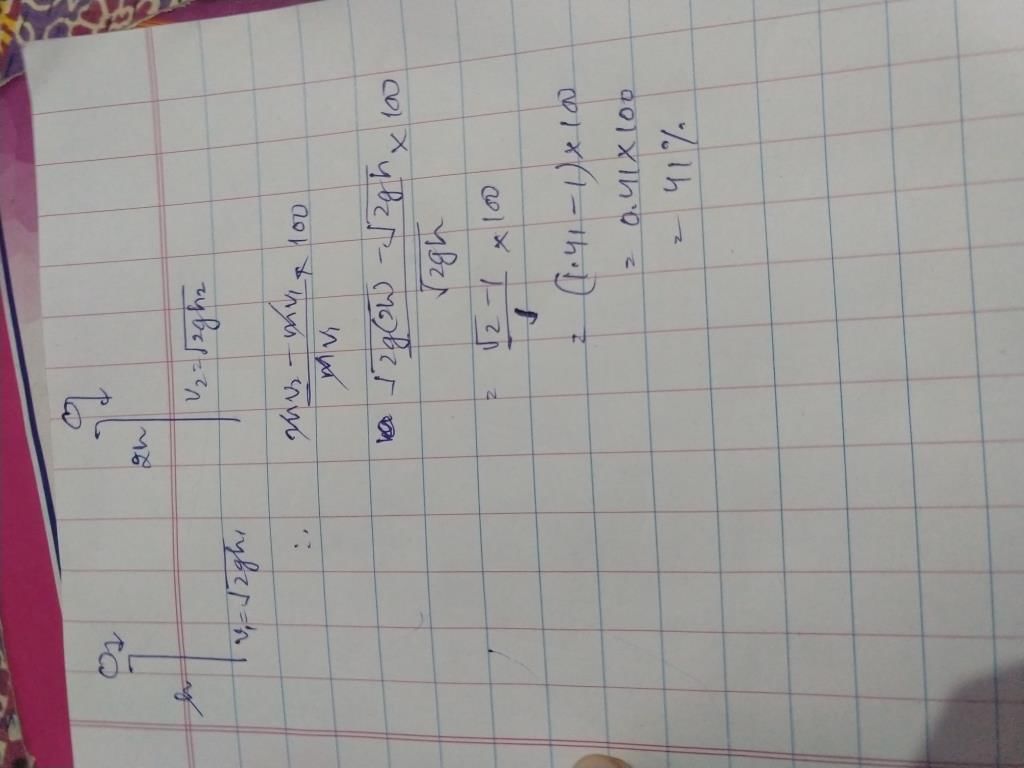 h 2h
v₁ = √2gh₁ v₂ = √2gh₂
∴ mv₂ - mv₁ / mv₁ × 100
√2g(2h) - √2gh / √2gh × 100
= √2 - 1 / 1 × 100
= (1.41 - 1) × 100
= 0.41 × 100
= 41%